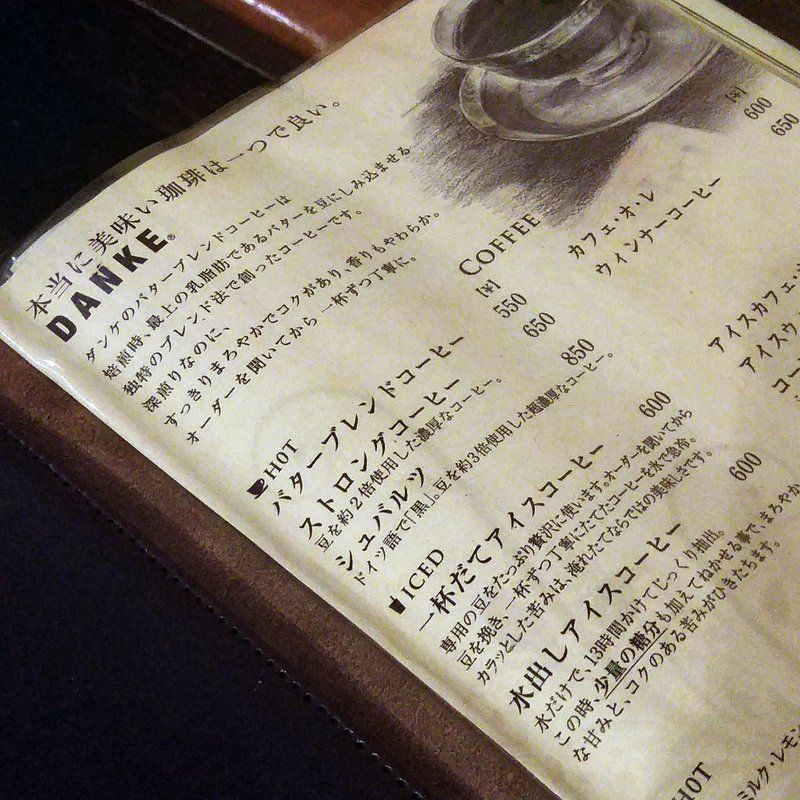 本当に美味い珈琲は一つで良い。
DANKE®
ダンケのバターブレンドコーヒーは
焙煎時、最上の乳脂肪であるバターを豆にしみ込ませる
独特のブレンド法で創ったコーヒーです。
深煎りなのに、
すっきりまろやかでコクがあり、香りもやわらか。
オーダーを聞いてから 一杯ずつ丁寧に。
COFFEE
HOT [¥]
バターブレンドコーヒー 550
ストロングコーヒー 650
豆を約2倍使用した濃厚なコーヒー。
シュバルツ 850
ドイツ語で「黒」。豆を約3倍使用した超濃厚なコーヒー。
ICED
一杯だてアイスコーヒー 600
専用の豆をたっぷり贅沢に使います。オーダーを聞いてから
豆を挽き、一杯ずつ丁寧にたてたコーヒーを氷で急冷。
カラッとした苦みは、淹れたてならではの美味しさです。
水出しアイスコーヒー 600
水だけで、13時間かけてじっくり抽出。
この時、少量の糖分も加えてねかせる事で、まろやか
な甘みと、コクのある苦みがひきたちます。
[¥]
カフェ・オ・レ 600
ウィンナーコーヒー 650
アイスカフェ・
アイスウ
コー
HOT
ミルク・レモン